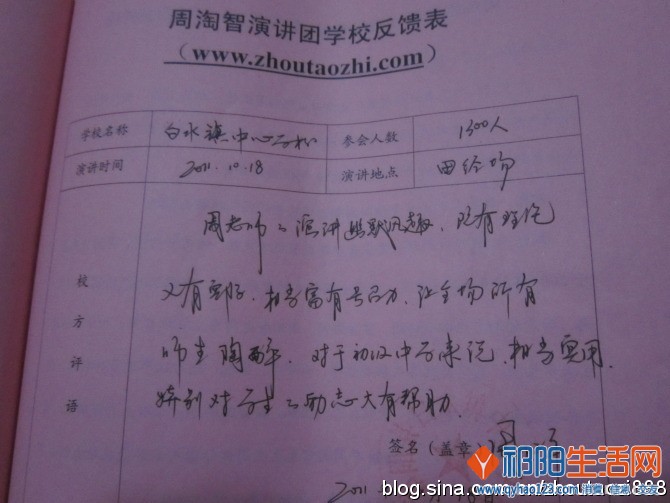 周淘智演讲团学校反馈表
(www.zhoutaozhi.com)
学校名称 白水镇中心学校 参会人数 1300人
演讲时间 2011.10.18 演讲地点 田径场
校方评语
周老师的演讲幽默风趣，既有理论
又有实际，相当富有号召力，让全场所有
师生陶醉，对于初级中学来说，相当实用，
特别对学生的励志大有帮助。
签名（盖章）
2011
祁阳生活网
www.qyhen123.com
blog.sina.com.cn/zhoutaozi888